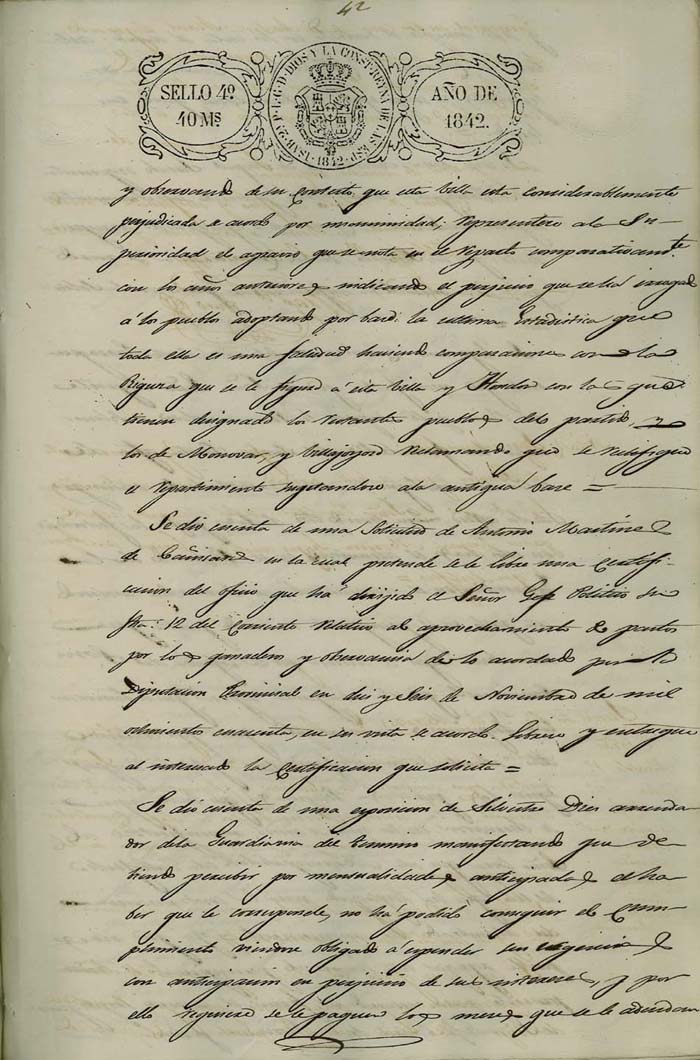 42
SELLO 4º
40 Ms
ISAB. 2ª P. L. G. D. DIOS Y LA CONST. REYNA DE LAS ESP. 1842
AÑO DE
1842.
y observando de su contesto que esta Villa esta considerablemente
perjudicada se acordo por unanimidad; representese a la Su-
perioridad el agravio que se nota en el reparto comparativamte
con los años anteriores indicando el perjuicio que se ha irrogado
á los pueblos adoptando por base la ultima Estadistica que
toda ella es una falsedad haciendo comparaciones con la
Riqueza que se le figura á esta Villa y Hondon con la que
tienen designado los restantes pueblos del partido y
los de Monovar, y Villajoyosa reclamando que se rectifique
el repartimiento sugetandose a la antigua base =
Se dio cuenta de una Solicitud de Antonio Martinez
de en la cual pretende se le libre una Certifi-
cacion del oficio que ha dirijido el Señor Gefe Politico su
fha: 12 del Corriente relativo al aprovechamiento de pastos
por los ganaderos y observancia de lo acordado por la
Diputacion Provincial en dies y Seis de Noviembre de mil
ochocientos cuarenta, en su vista se acordo. Librese y entreguese
al interesado la Certificacion que solicita =
Se dio cuenta de una esposicion de Silvestre Dies arrenda
dor de la Guardiania del termino manifestando que de-
biendo percibir por mensualidades anticipadas el ha
ber que le corresponde, no ha podido conseguir el cum-
plimiento viendose obligado á espender sus
con anticipacion en perjuicio de sus intereses, y por
ello se le paguen los meses que se le adeudan